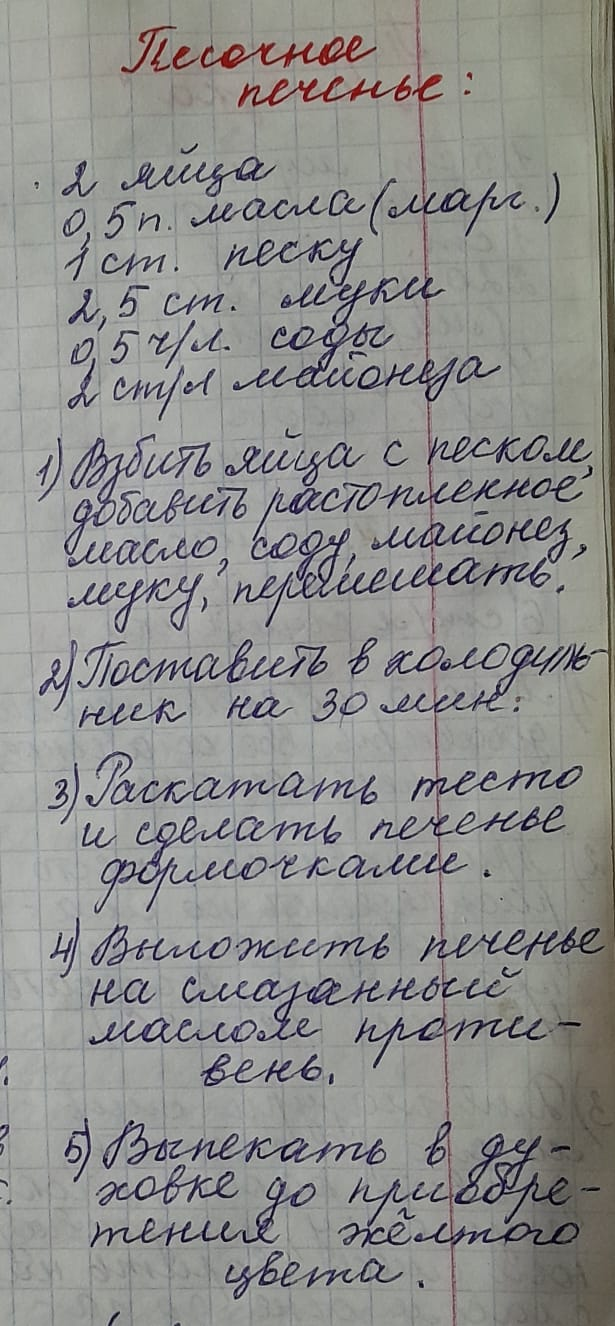 Песочное
печенье:
2 яйца
0,5 п. масла (марг.)
1 ст. песку
2,5 ст. муки
0,5 ч/л. соды
2 ст/л майонеза
1) Взбить яйца с песком,
добавить растопленное
масло, соду, майонез,
муку, перемешать.
2) Поставить в холодиль-
ник на 30 мин.
3) Раскатать тесто
и сделать печенье
формочками.
4) Выложить печенье
на смазанный
маслом проти-
вень.
5) Выпекать в ду-
ховке до приобре-
тения жёлтого
цвета.